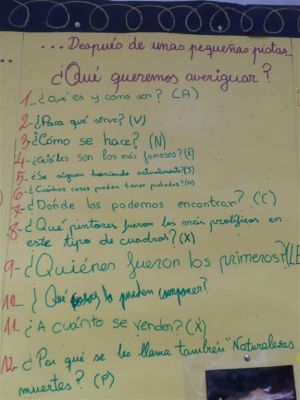 ... Después de unas pequeñas pistas...
¿Qué queremos averiguar?
1-¿Qué es y cómo son? (A)
2-¿Para qué sirve? (V)
3-¿Cómo se hace? (N)
4-¿Cuáles son los más famosos?
5-¿Se siguen haciendo actualmente?(S)
6-¿Cuántas cosas pueden tener pintadas?(M)
7-¿Dónde los podemos encontrar? (C)
8-¿Qué pintores fueron los más prolíficos en
este tipo de cuadros? (X)
9-¿Quiénes fueron los primeros?(LE
10-¿Qué cosas lo pueden componer?
11-¿A cuánto se venden? (X)
12-¿Por qué se les llama también "Naturalezas
muertes? (P)